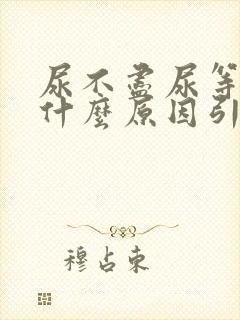 尿不盡尿等
什麼原因引
穆占東